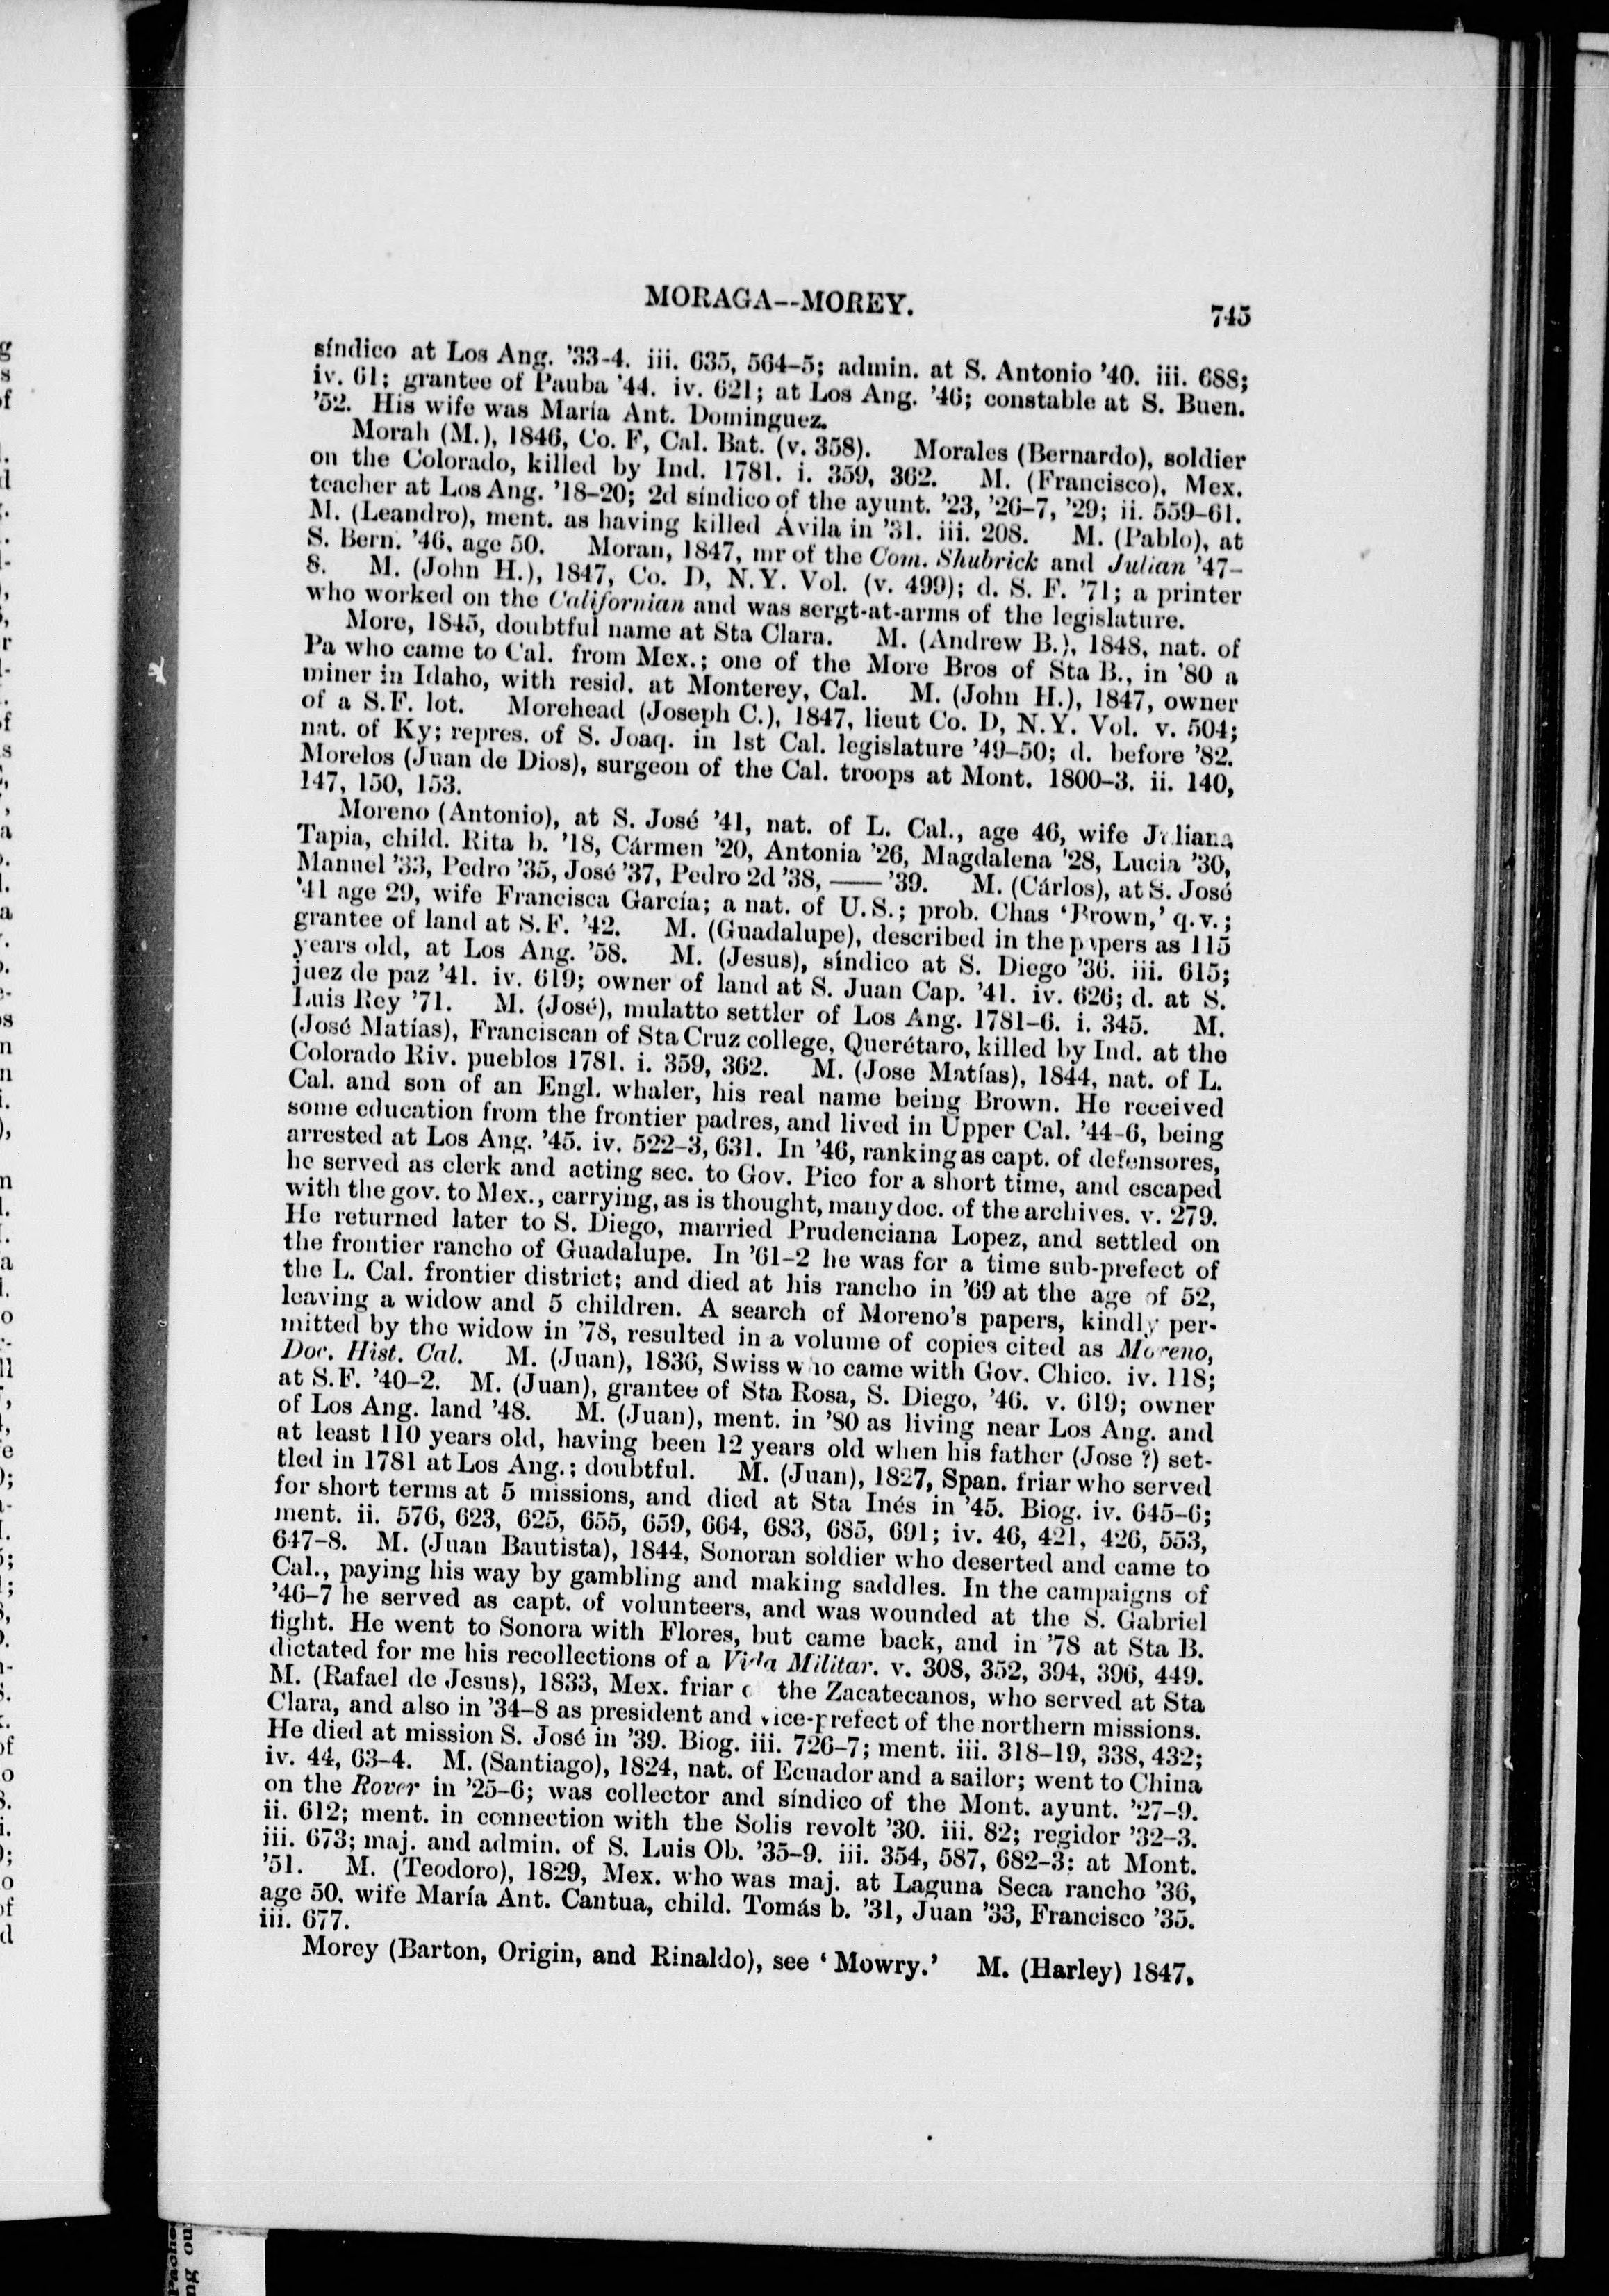 MORAGA--MOREY. 745
síndico at Los Ang. '33-4. iii. 635, 564-5; admin. at S. Antonio '40. iii. 688;
iv. 61; grantee of Pauba '44. iv. 621; at Los Ang. '46; constable at S. Buen.
'52. His wife was María Ant. Dominguez.
Morah (M.), 1846, Co. F, Cal. Bat. (v. 358). Morales (Bernardo), soldier
on the Colorado, killed by Ind. 1781. i. 359, 362. M. (Francisco), Mex.
teacher at Los Ang. '18-20; 2d síndico of the ayunt. '23, '26-7, '29; ii. 559-61.
M. (Leandro), ment. as having killed Ávila in '31. iii. 208. M. (Pablo), at
S. Bern. '46, age 50. Moran, 1847, mr of the Com. Shubrick and Julian '47-
8. M. (John H.), 1847, Co. D, N.Y. Vol. (v. 499); d. S. F. '71; a printer
who worked on the Californian and was sergt-at-arms of the legislature.
More, 1845, doubtful name at Sta Clara. M. (Andrew B.), 1848, nat. of
Pa who came to Cal. from Mex.; one of the More Bros of Sta B., in '80 a
miner in Idaho, with resid. at Monterey, Cal. M. (John H.), 1847, owner
of a S.F. lot. Morehead (Joseph C.), 1847, lieut Co. D, N.Y. Vol. v. 504;
nat. of Ky; repres. of S. Joaq. in 1st Cal. legislature '49-50; d. before '82.
Morelos (Juan de Dios), surgeon of the Cal. troops at Mont. 1800-3. ii. 140,
147, 150, 153.
Moreno (Antonio), at S. José '41, nat. of L. Cal., age 46, wife Juliana
Tapia, child. Rita b. '18, Cármen '20, Antonia '26, Magdalena '28, Lucia '30,
Manuel '33, Pedro '35, José '37, Pedro 2d '38, —— '39. M. (Cárlos), at S. José
'41 age 29, wife Francisca García; a nat. of U.S.; prob. Chas 'Brown,' q.v.;
grantee of land at S.F. '42. M. (Guadalupe), described in the papers as 115
years old, at Los Ang. '58. M. (Jesus), síndico at S. Diego '36. iii. 615;
juez de paz '41. iv. 619; owner of land at S. Juan Cap. '41. iv. 626; d. at S.
Luis Rey '71. M. (José), mulatto settler of Los Ang. 1781-6. i. 345. M.
(José Matías), Franciscan of Sta Cruz college, Querétaro, killed by Ind. at the
Colorado Riv. pueblos 1781. i. 359, 362. M. (Jose Matías), 1844, nat. of L.
Cal. and son of an Engl. whaler, his real name being Brown. He received
some education from the frontier padres, and lived in Upper Cal. '44-6, being
arrested at Los Ang. '45. iv. 522-3, 631. In '46, ranking as capt. of defensores,
he served as clerk and acting sec. to Gov. Pico for a short time, and escaped
with the gov. to Mex., carrying, as is thought, many doc. of the archives. v. 279.
He returned later to S. Diego, married Prudenciana Lopez, and settled on
the frontier rancho of Guadalupe. In '61-2 he was for a time sub-prefect of
the L. Cal. frontier district; and died at his rancho in '69 at the age of 52,
leaving a widow and 5 children. A search of Moreno's papers, kindly per-
mitted by the widow in '78, resulted in a volume of copies cited as Moreno,
Doc. Hist. Cal. M. (Juan), 1836, Swiss who came with Gov. Chico. iv. 118;
at S.F. '40-2. M. (Juan), grantee of Sta Rosa, S. Diego, '46. v. 619; owner
of Los Ang. land '48. M. (Juan), ment. in '80 as living near Los Ang. and
at least 110 years old, having been 12 years old when his father (Jose ?) set-
tled in 1781 at Los Ang.; doubtful. M. (Juan), 1827, Span. friar who served
for short terms at 5 missions, and died at Sta Inés in '45. Biog. iv. 645-6;
ment. ii. 576, 623, 625, 655, 659, 664, 683, 685, 691; iv. 46, 421, 426, 553,
647-8. M. (Juan Bautista), 1844, Sonoran soldier who deserted and came to
Cal., paying his way by gambling and making saddles. In the campaigns of
'46-7 he served as capt. of volunteers, and was wounded at the S. Gabriel
fight. He went to Sonora with Flores, but came back, and in '78 at Sta B.
dictated for me his recollections of a Vida Militar. v. 308, 352, 394, 396, 449.
M. (Rafael de Jesus), 1833, Mex. friar the Zacatecanos, who served at Sta
Clara, and also in '34-8 as president and vice-prefect of the northern missions.
He died at mission S. José in '39. Biog. iii. 726-7; ment. iii. 318-19, 338, 432;
iv. 44, 63-4. M. (Santiago), 1824, nat. of Ecuador and a sailor; went to China
on the Rover in '25-6; was collector and síndico of the Mont. ayunt. '27-9.
ii. 612; ment. in connection with the Solis revolt '30. iii. 82; regidor '32-3.
iii. 673; maj. and admin. of S. Luis Ob. '35-9. iii. 354, 587, 682-3; at Mont.
'51. M. (Teodoro), 1829, Mex. who was maj. at Laguna Seca rancho '36,
age 50, wife María Ant. Cantua, child. Tomás b. '31, Juan '33, Francisco '35.
iii. 677.
Morey (Barton, Origin, and Rinaldo), see 'Mowry.' M. (Harley) 1847,